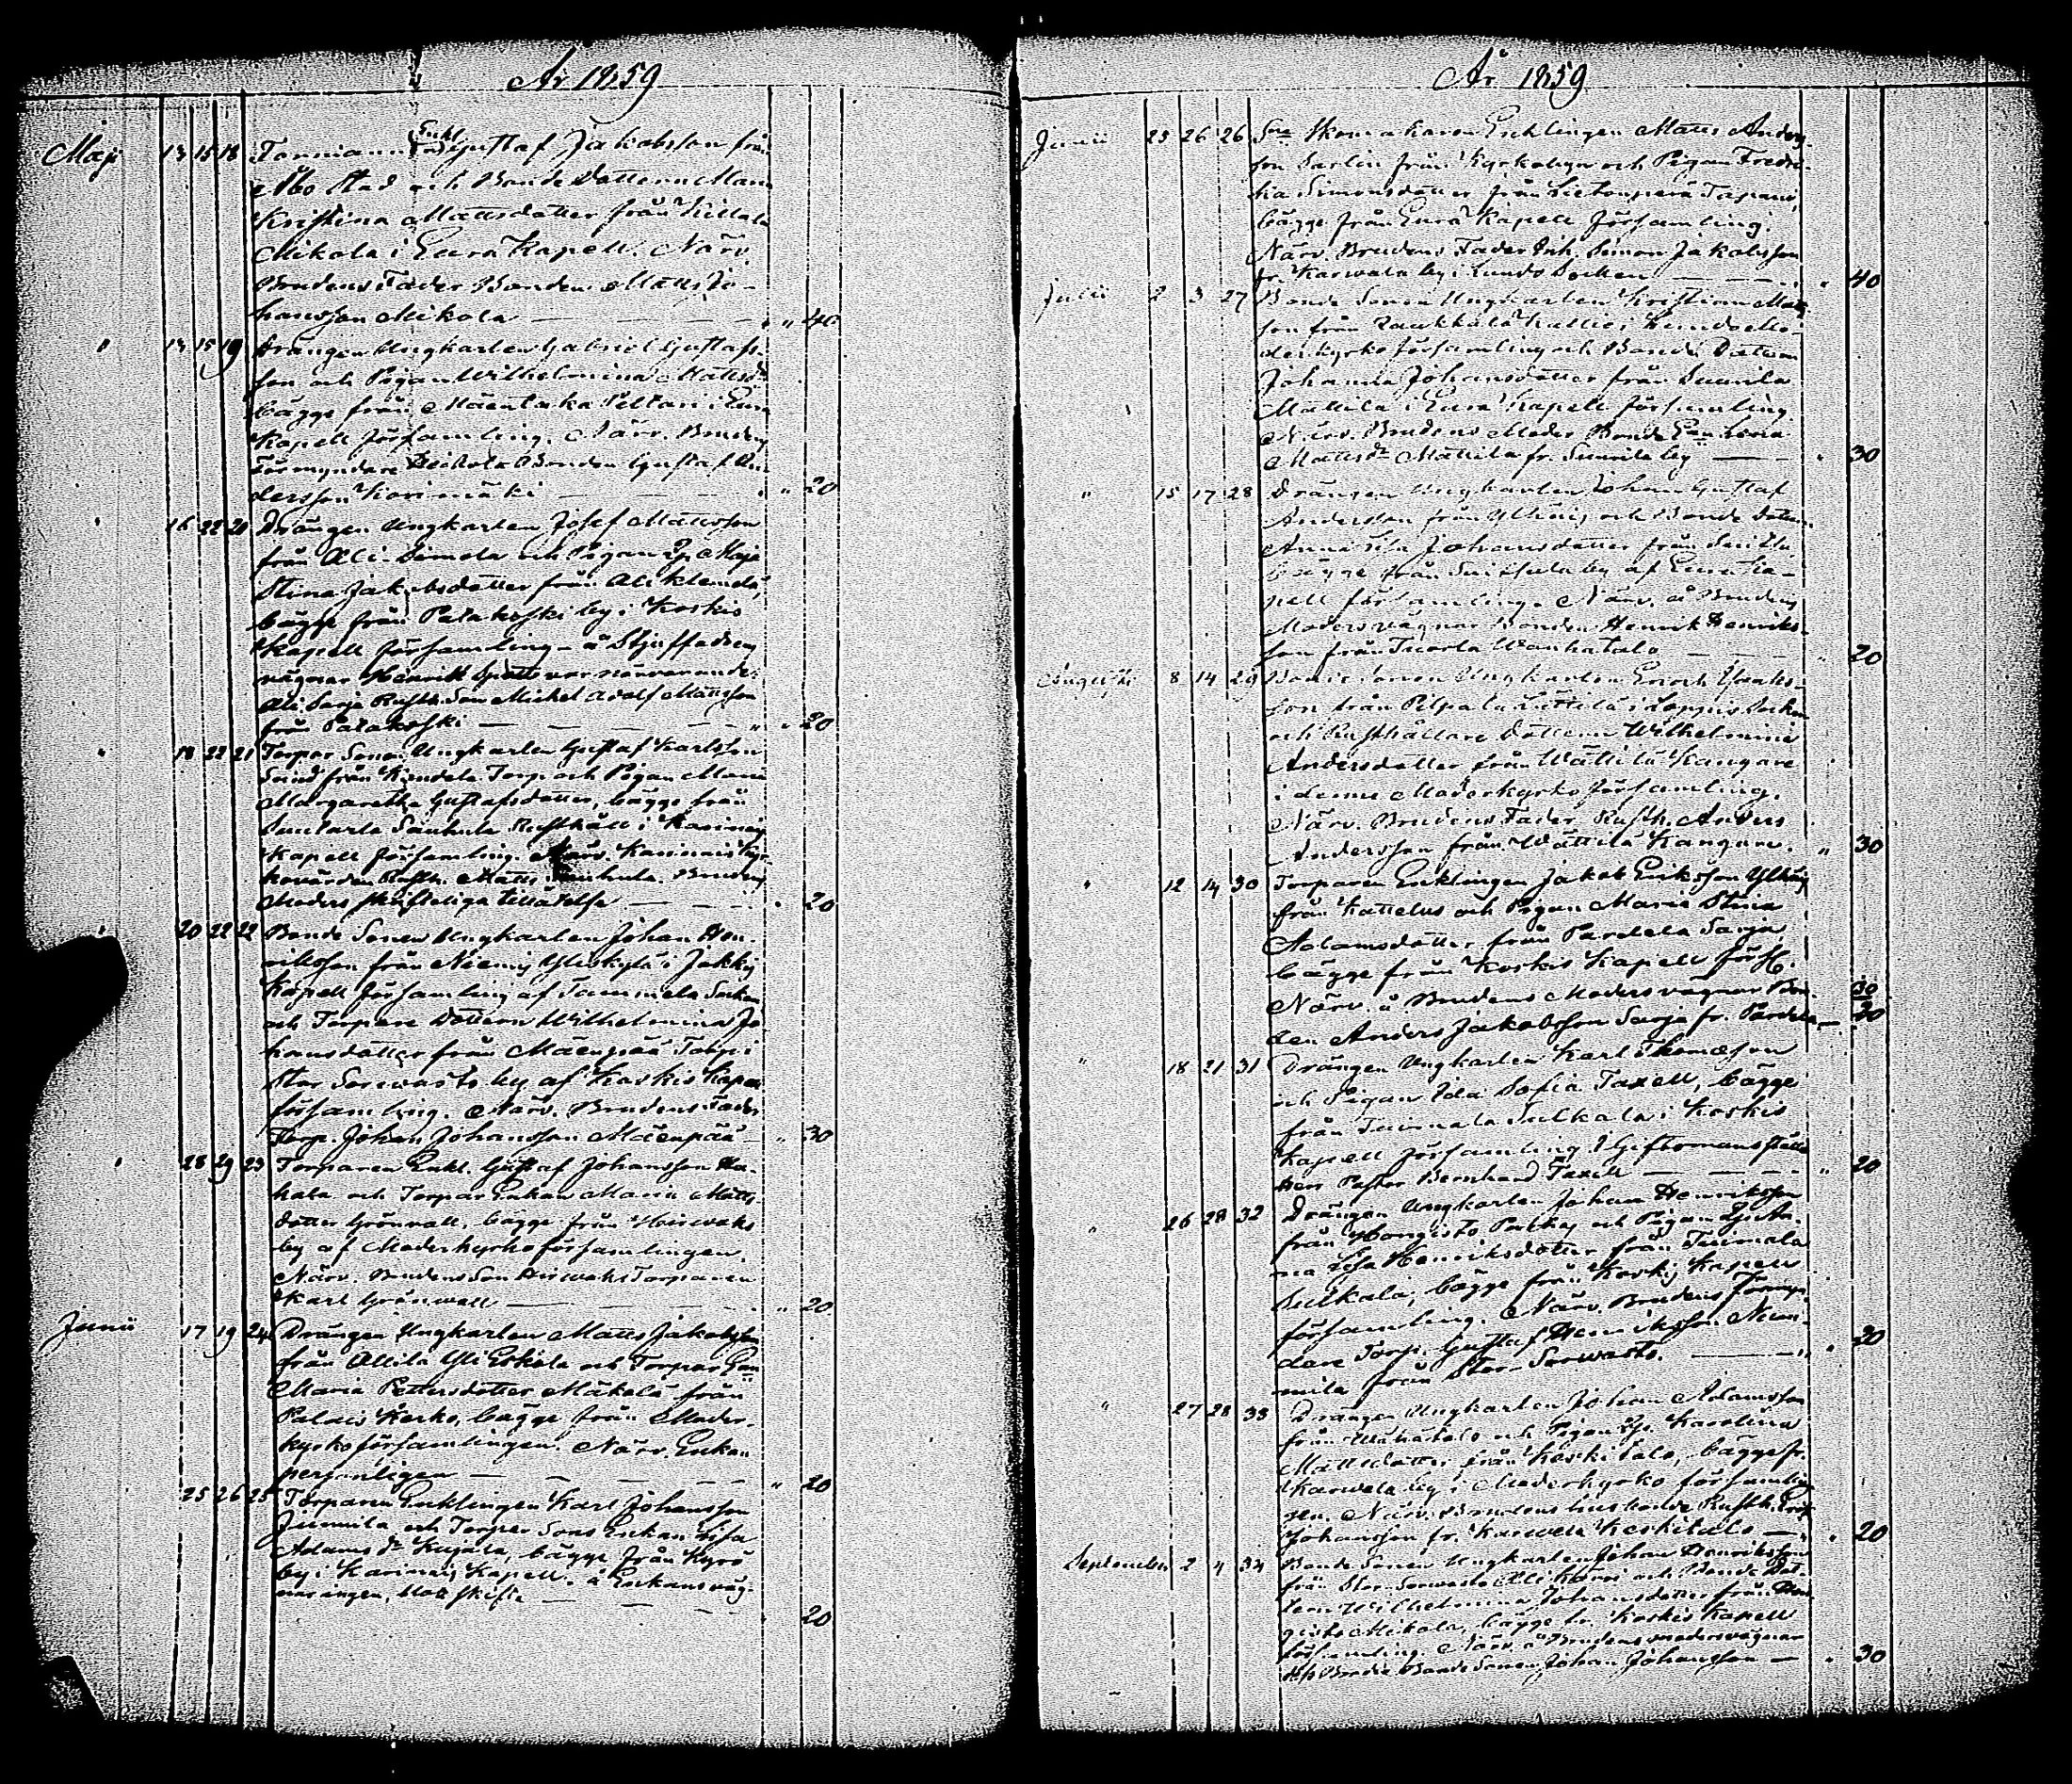 År 1859
Maji 13 15 18 Enkl. Gustaf Jakobsson från
Åbo Stad och Bonde Dottern Maria
Kristina Mattsdotter från Killala
Mikola i Eura Kapell. Närv.
Brudens Fader Bonden Matts Jo-
hansson Mikola — " 40
" 13 15 19 Drängen Ungkarlen Gabriel Gustafs-
son och Pigan Wilhelmina Mattsdr
bägge från Mäentaka Peltari i Eura
Kapell församling. Närv. Brudens
Förmyndare Bonden Gustaf An-
dersson Korimäki — " 20
" 16 22 20 Drängen Ungkarlen Josef Mattsson
från Ali-Simola och Pigan Maja
Stina Jakobsdotter från Ali Klemelä,
bägge från Patakoski by i Koskis
Kapell församling – å Stjuffadrens
vägnar Henrik var närvarande
Ali Sarja Rusth. Son Michel Adolf Mattsson
från Patakoski — " 20
" 18 22 21 Torpar Sonen Ungkarlen Gustaf Karlsson
Sund från Torp och Pigan Maria
Margaretha Gustafsdotter, bägge från
Suutarla Sauhula Rusthåll i Karinais
Kapell församling. Närv. Karinais Kyr-
kovärden Rusth. Matts Sauhula. Brudens
Moders skrifteliga tillåtelse — " 20
" 20 22 22 Bonde Sonen Ungkarlen Johan Hen-
riksson från Niemis Yliskylä i Jokkis
Kapell församling af Tammela Socken
och Torpare Dottern Wilhelmina Jo-
hansdotter från Mäenpää Torp i
Stor Sorwasto by af Koskis Kapell
församling. Närv. Brudens Fader
Torp. Johan Johansson Mäenpää — " 30
" 28 29 23 Torparen Enkl. Gustaf Johansson
och Torpar Enkan Maria Matts-
dotter Grönvall, bägge från Hirwaks
by af Moderkyrkoförsamlingen.
Närv. Brudens Son Hirwaks Torparen
Karl Grönwall — " 20
Junii 17 19 24 Drängen Ungkarlen Matts Jakobsson
från Attila Yli Eskola och Torpar En
Maria Pettersdotter Mäkelä från
Palais Kerko, bägge från Moder-
kyrkoförsamlingen. Närv. Enkan
personligen — " 20
25 26 25 Torparen Enklingen Karl Johansson
Junnila och Torpar Sons Enkan Lisa
Adams dr Kujala, bägge från Kyrö
by i Karinais Kapell. å Enkans väg-
nar ingen, blott skifte — 20
År 1859
Junii 25 26 26 Enklingen Matts Anders-
son Sarlin från Kyrkobyn och Pigan Fredri-
ka Simonsdotter från Lietsanperä Tapani,
bägge från Eura Kapell församling.
Närv. Brudens Fader Inh. Simon Jakobsson
fr. Karwala by i Lundo Socken — " 40
Julii 2 3 27 Bonde Sonen Ungkarlen Kristian Matts-
son från Raukkala Kallio i Mo-
derkyrko församling och Bonde Dottern
Johanna Johansdotter från Suurila
Mattila i Eura Kapell församling.
Närv. Brudens Moder Bonde En Lovisa
Mattsdr Mattila fr. Suurila by — " 30
" 15 17 28 Drängen Ungkarlen Johan Gustaf
Andersson från Yllänis och Bonde Dottern
Anna Lisa Johansdotter från
bägge från by af Eura Ka-
pell församling. Närv. å Brudens
Moders vägnar Bonden Henrik Henriks-
son från Tuorla Wanhatalo — " 20
Augusti 8 14 29 Bonde Sonen Ungkarlen Enoch Isaks-
son från Pilpala Lättilä i Loppis Socken
och Rusthållare Dottern Wilhelmina
Andersdotter från Wättilä Kangare
i denne Moderkyrko församling.
Närv. Brudens Fader Rusth. Anders
Andersson från Wättilä Kangare. " 30
" 12 14 30 Torparen Enklingen Jakob Eriksson
från Kattelus och Pigan Maria Stina
Adamsdotter från Pardela Sarja,
bägge från Koskis Kapell förs.
Närv. å Brudens Moders vägnar Bon- 30
den Anders Jakobsson Sarja fr. Pardela — 20
" 18 21 31 Drängen Ungkarlen Karl Thomasson
och Pigan Ida Sofia Taxell, bägge
från Tuimala Sulkala i Koskis
Kapell församling. I Giftomans ställe
Herr Pastor Bernhard Taxell — " 20
" 26 28 32 Drängen Ungkarlen Johan Henriksson
från Hongisto Pulkas och Pigan An-
na Lisa Henriksdotter från Tuimala
Sulkala, bägge från Koskis Kapell
församling. Närv. Brudens Förmyn-
dare Torp. Gustaf Henriksson
från Stor-Sorwasto. — " 20
" 27 28 33 Drängen Ungkarlen Johan Adamsson
från Wähätalo och Pigan Karolina
Mattsdotter från Keskitalo, bägge fr.
Karwela by i Moderkyrko församlin-
gen. Närv. Brudens husbonde Rusth.
Johansson fr. Karwela Keskitalo — " 20
September 2 4 34 Bonde Sonen Ungkarlen Johan Henriksson
från Stor-Sorwasto och Bonde Dot-
tern Wilhelmina Johansdotter från Hon-
gisto Mikola, bägge fr. Koskis Kapell
församling. Närv. å Brudens modersvägnar
Bonde Sonen Johan Johansson — " 30